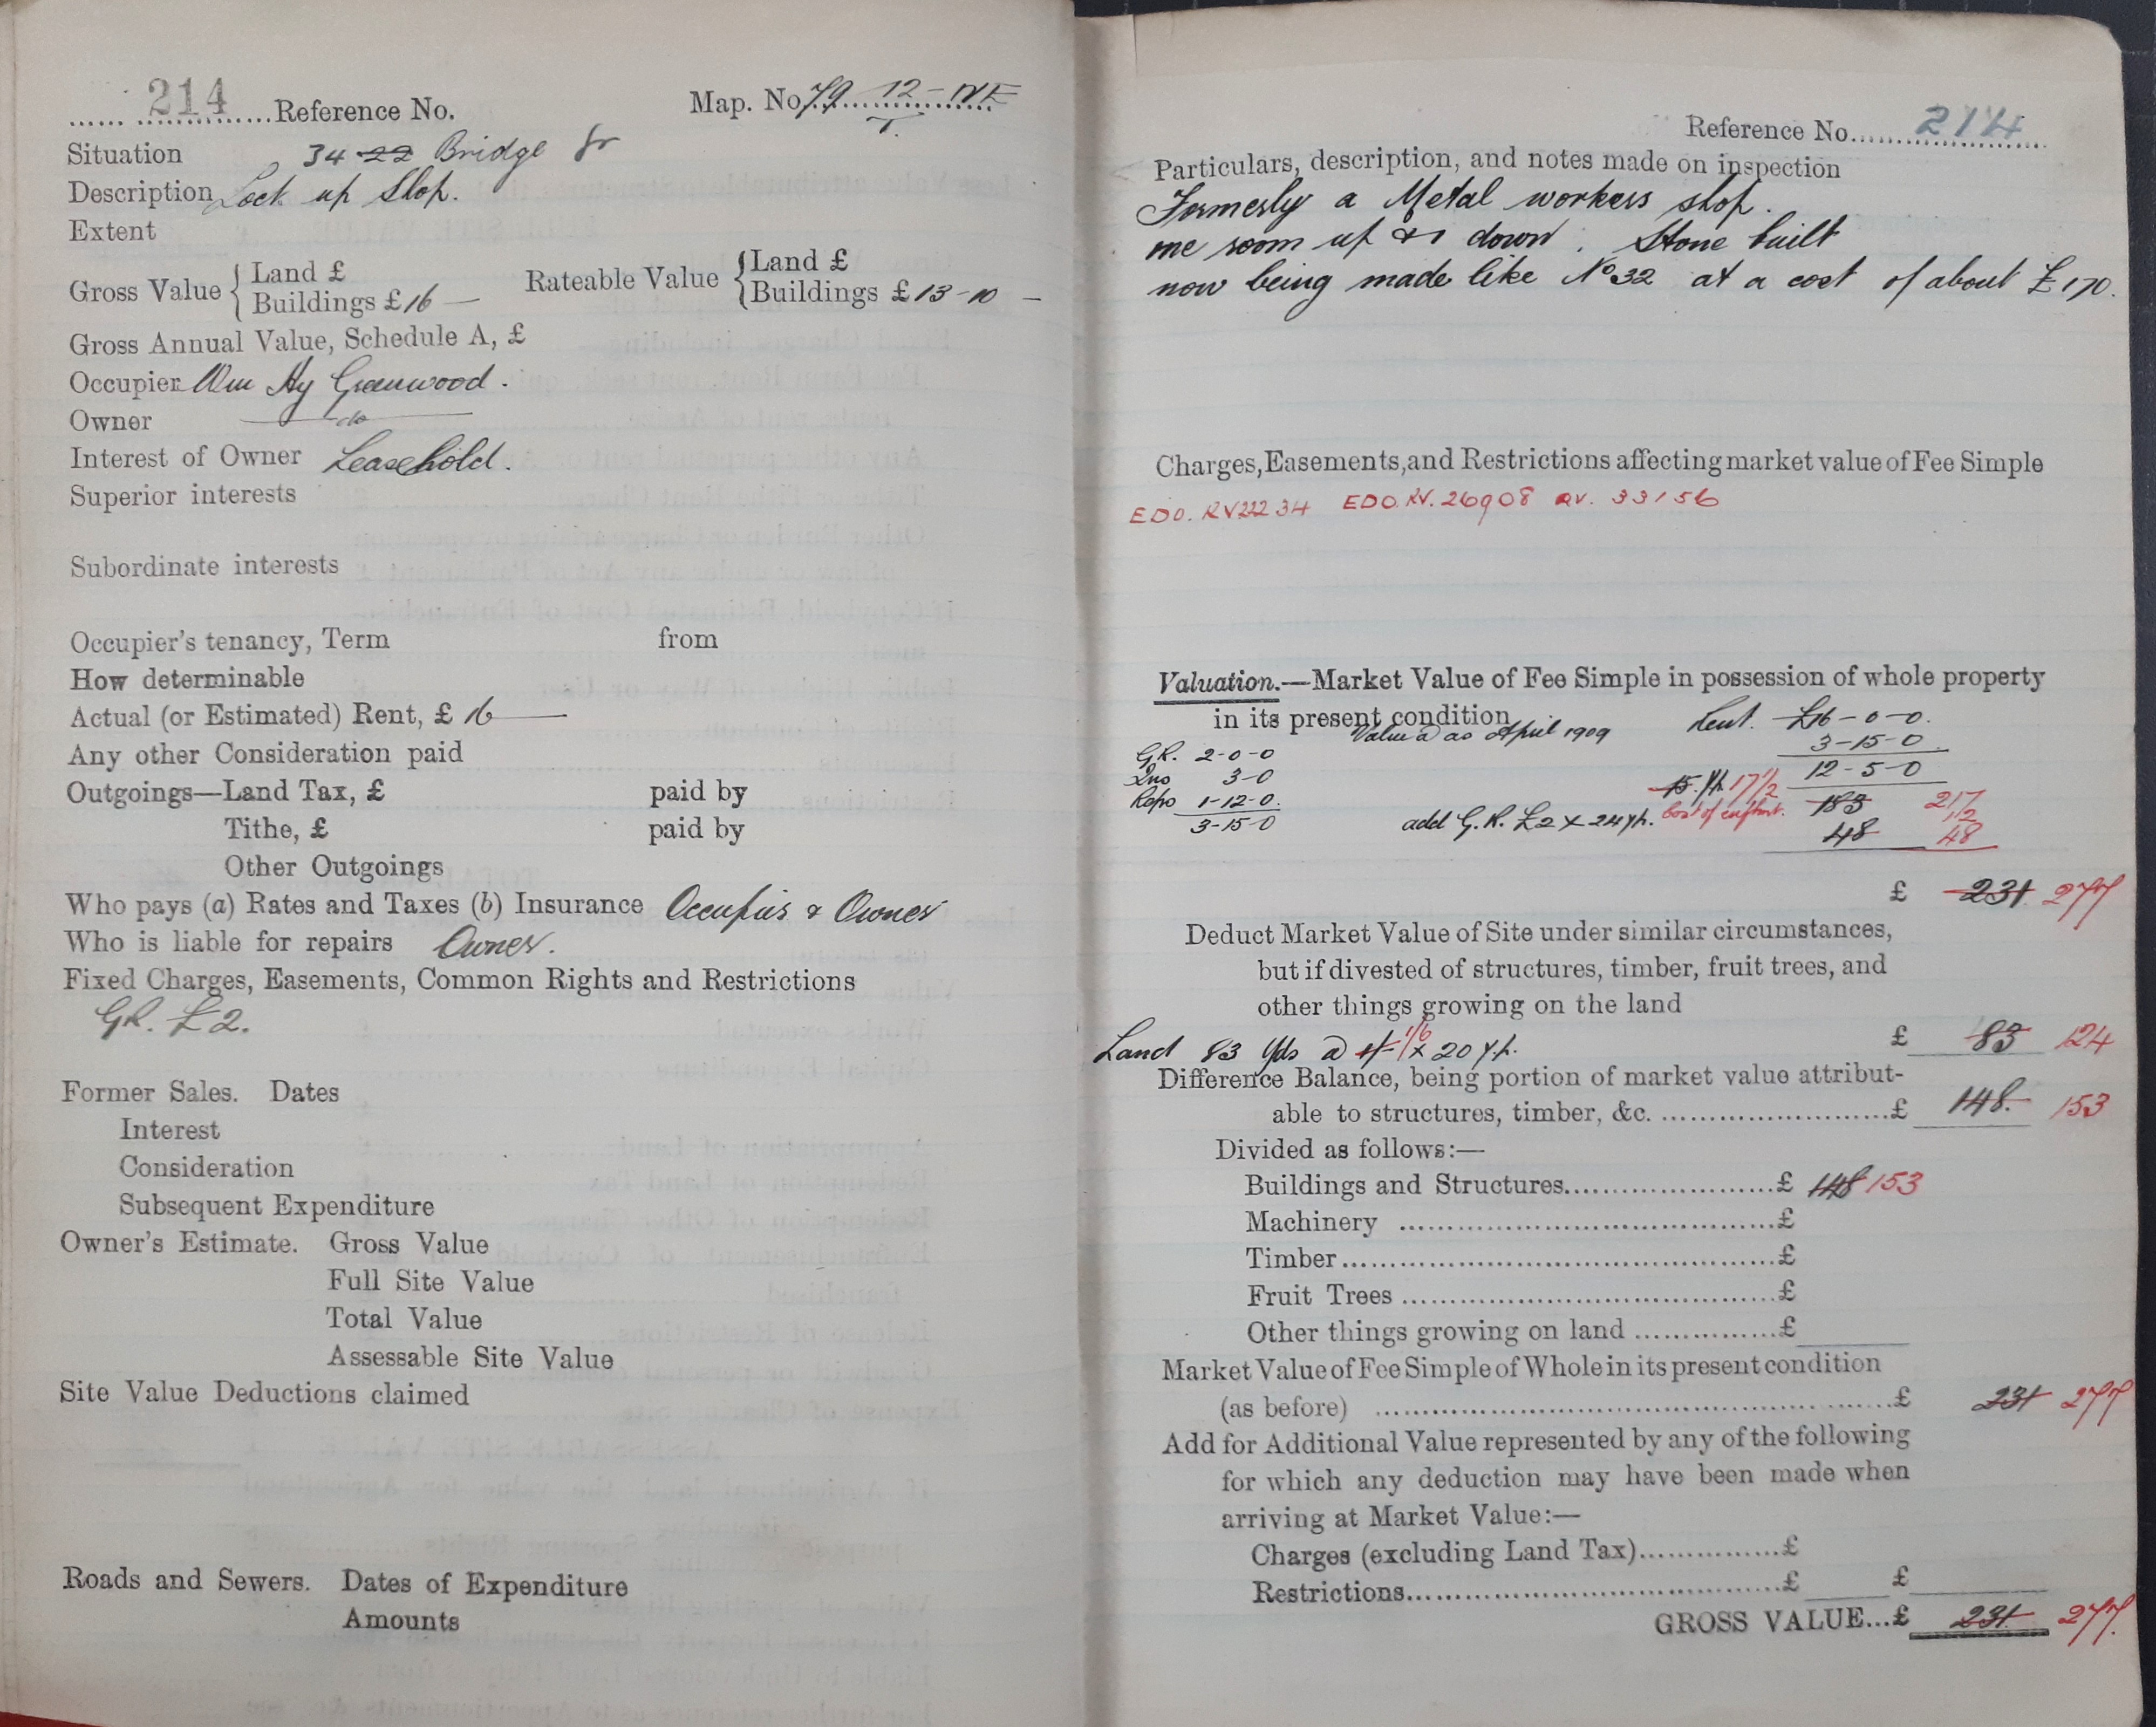 214 Reference No. Map. No 79 12-NE
T.
Situation 34 22 Bridge St
Description Lock up Shop.
Extent
Gross Value { Land £
Buildings £16 —
Rateable Value { Land £
Buildings £13-10 —
Gross Annual Value, Schedule A, £
Occupier Wm Hy Greenwood.
Owner —do—
Interest of Owner Leasehold.
Superior interests
Subordinate interests
Occupier's tenancy, Term from
How determinable
Actual (or Estimated) Rent, £ 16 —
Any other Consideration paid
Outgoings—Land Tax, £ paid by
Tithe, £ paid by
Other Outgoings
Who pays (a) Rates and Taxes (b) Insurance Occupier & Owner
Who is liable for repairs Owner.
Fixed Charges, Easements, Common Rights and Restrictions
GR. £2.
Former Sales. Dates
Interest
Consideration
Subsequent Expenditure
Owner's Estimate. Gross Value
Full Site Value
Total Value
Assessable Site Value
Site Value Deductions claimed
Roads and Sewers. Dates of Expenditure
Amounts
Reference No. 214
Particulars, description, and notes made on inspection
Formerly a Metal workers shop.
one room up & 1 down. Stone built
now being made like No 32 at a cost of about £170.
Charges, Easements, and Restrictions affecting market value of Fee Simple
EDO. RV22234 EDO. RV. 26908 RV. 33156
Valuation.—Market Value of Fee Simple in possession of whole property
in its present condition
Value as April 1909 Rent. £16-0-0.
3-15-0
GR. 2-0-0
Ins 3-0
Reps 1-12-0.
3-15-0
12-5-0
15 Yp. 17½ 183 217
Cost of enfhmt. ½
add G.R. £2 x 24 yp. 48 48
£ 231 277
Deduct Market Value of Site under similar circumstances,
but if divested of structures, timber, fruit trees, and
other things growing on the land
Land 83 Yds @ 1/- 1/6 x 20 Y.p. £ 83 124
Difference Balance, being portion of market value attribut-
able to structures, timber, &c. £ 148. 153
Divided as follows:—
Buildings and Structures £ 148 153
Machinery £
Timber £
Fruit Trees £
Other things growing on land £
Market Value of Fee Simple of Whole in its present condition
(as before) £ 231 277
Add for Additional Value represented by any of the following
for which any deduction may have been made when
arriving at Market Value:—
Charges (excluding Land Tax) £
Restrictions £ £
GROSS VALUE...£ 231 277.